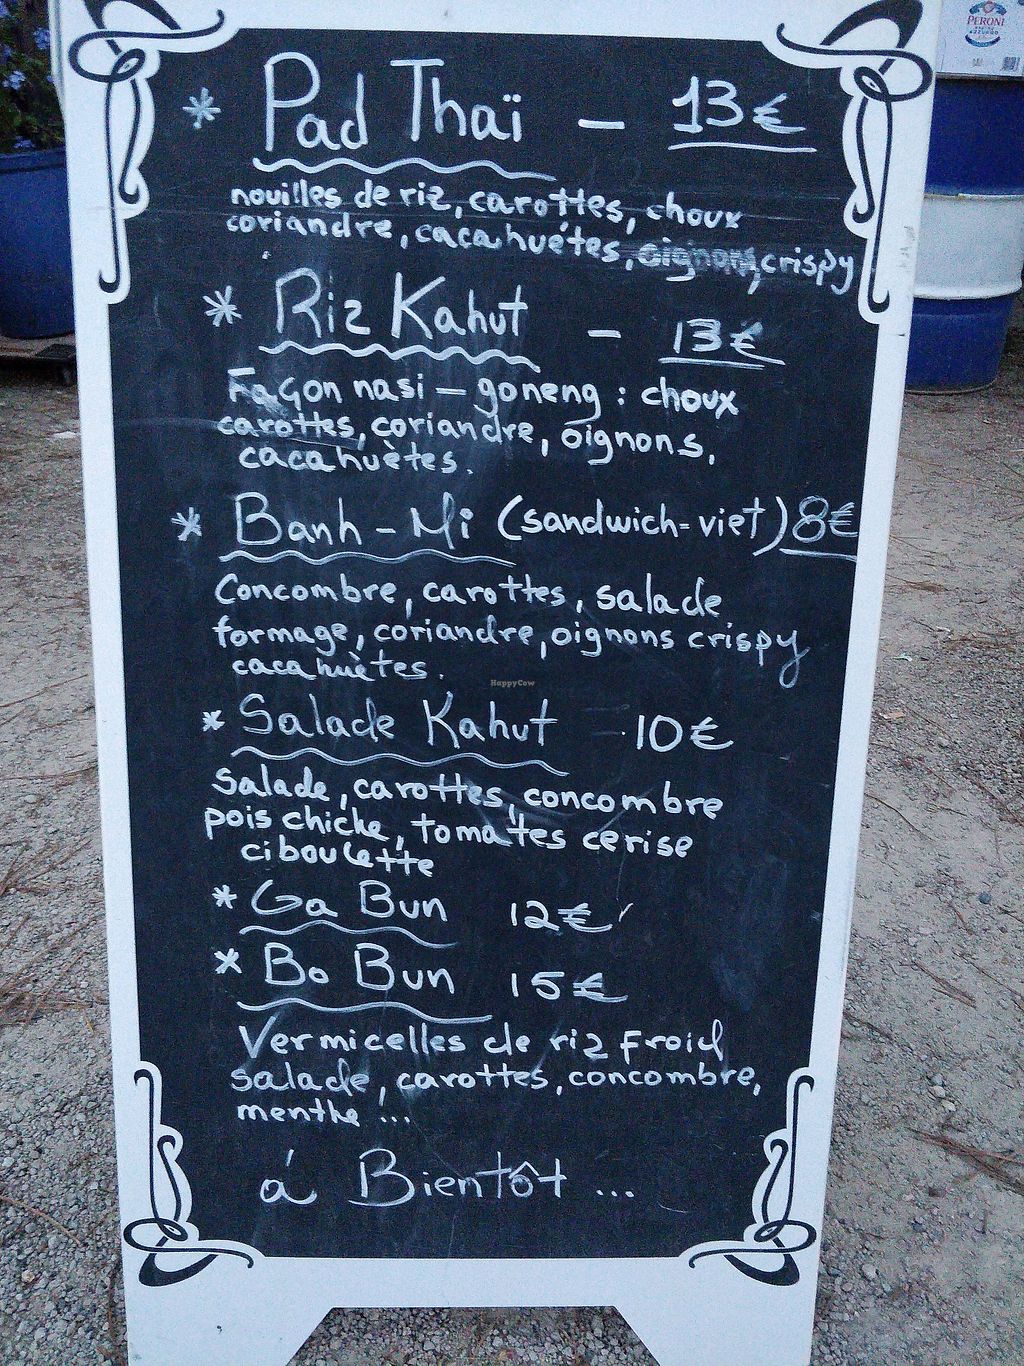 PERONI
* Pad Thaï — 13€
nouilles de riz, carottes, choux
coriandre, cacahuétes, oignons, crispy
* Riz Kahut — 13€
Façon nasi — goneng : choux
carottes, coriandre, oignons,
cacahuètes.
* Banh - Mi (sandwich-viet) 8€
Concombre, carottes, salade
formage, coriandre, oignons crispy
cacahuètes.
HappyCow
* Salade Kahut - 10€
Salade, carottes, concombre
pois chiche, tomates cerise
ciboulette
* Ga Bun 12€
* Bo Bun 15€
Vermicelles de riz Froid
salade, carottes, concombre,
menthe ...
á Bientôt ...